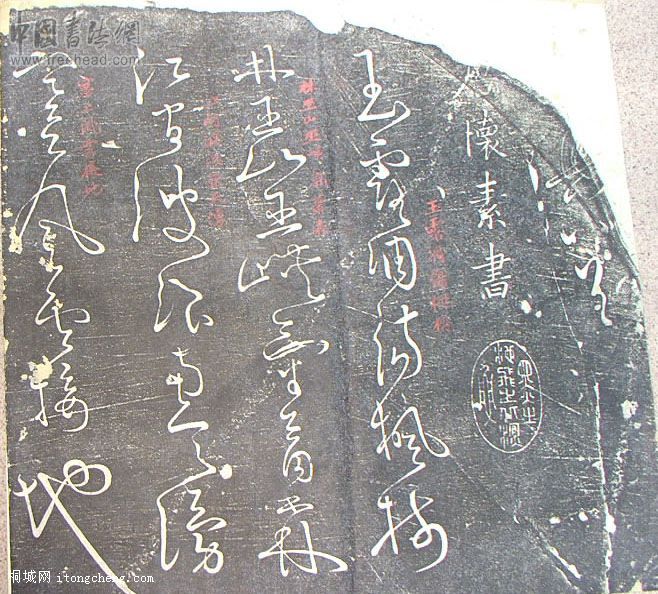 中国书法网
www.freehead.com
懷素書
玉露凋傷楓樹
玉露凋傷楓樹
林巫山巫峽氣蕭森
林巫山巫峽氣蕭森
江間波浪兼天湧
江間波浪兼天湧
塞上風雲接地
塞上風雲接地
桐城网 itongcheng.com